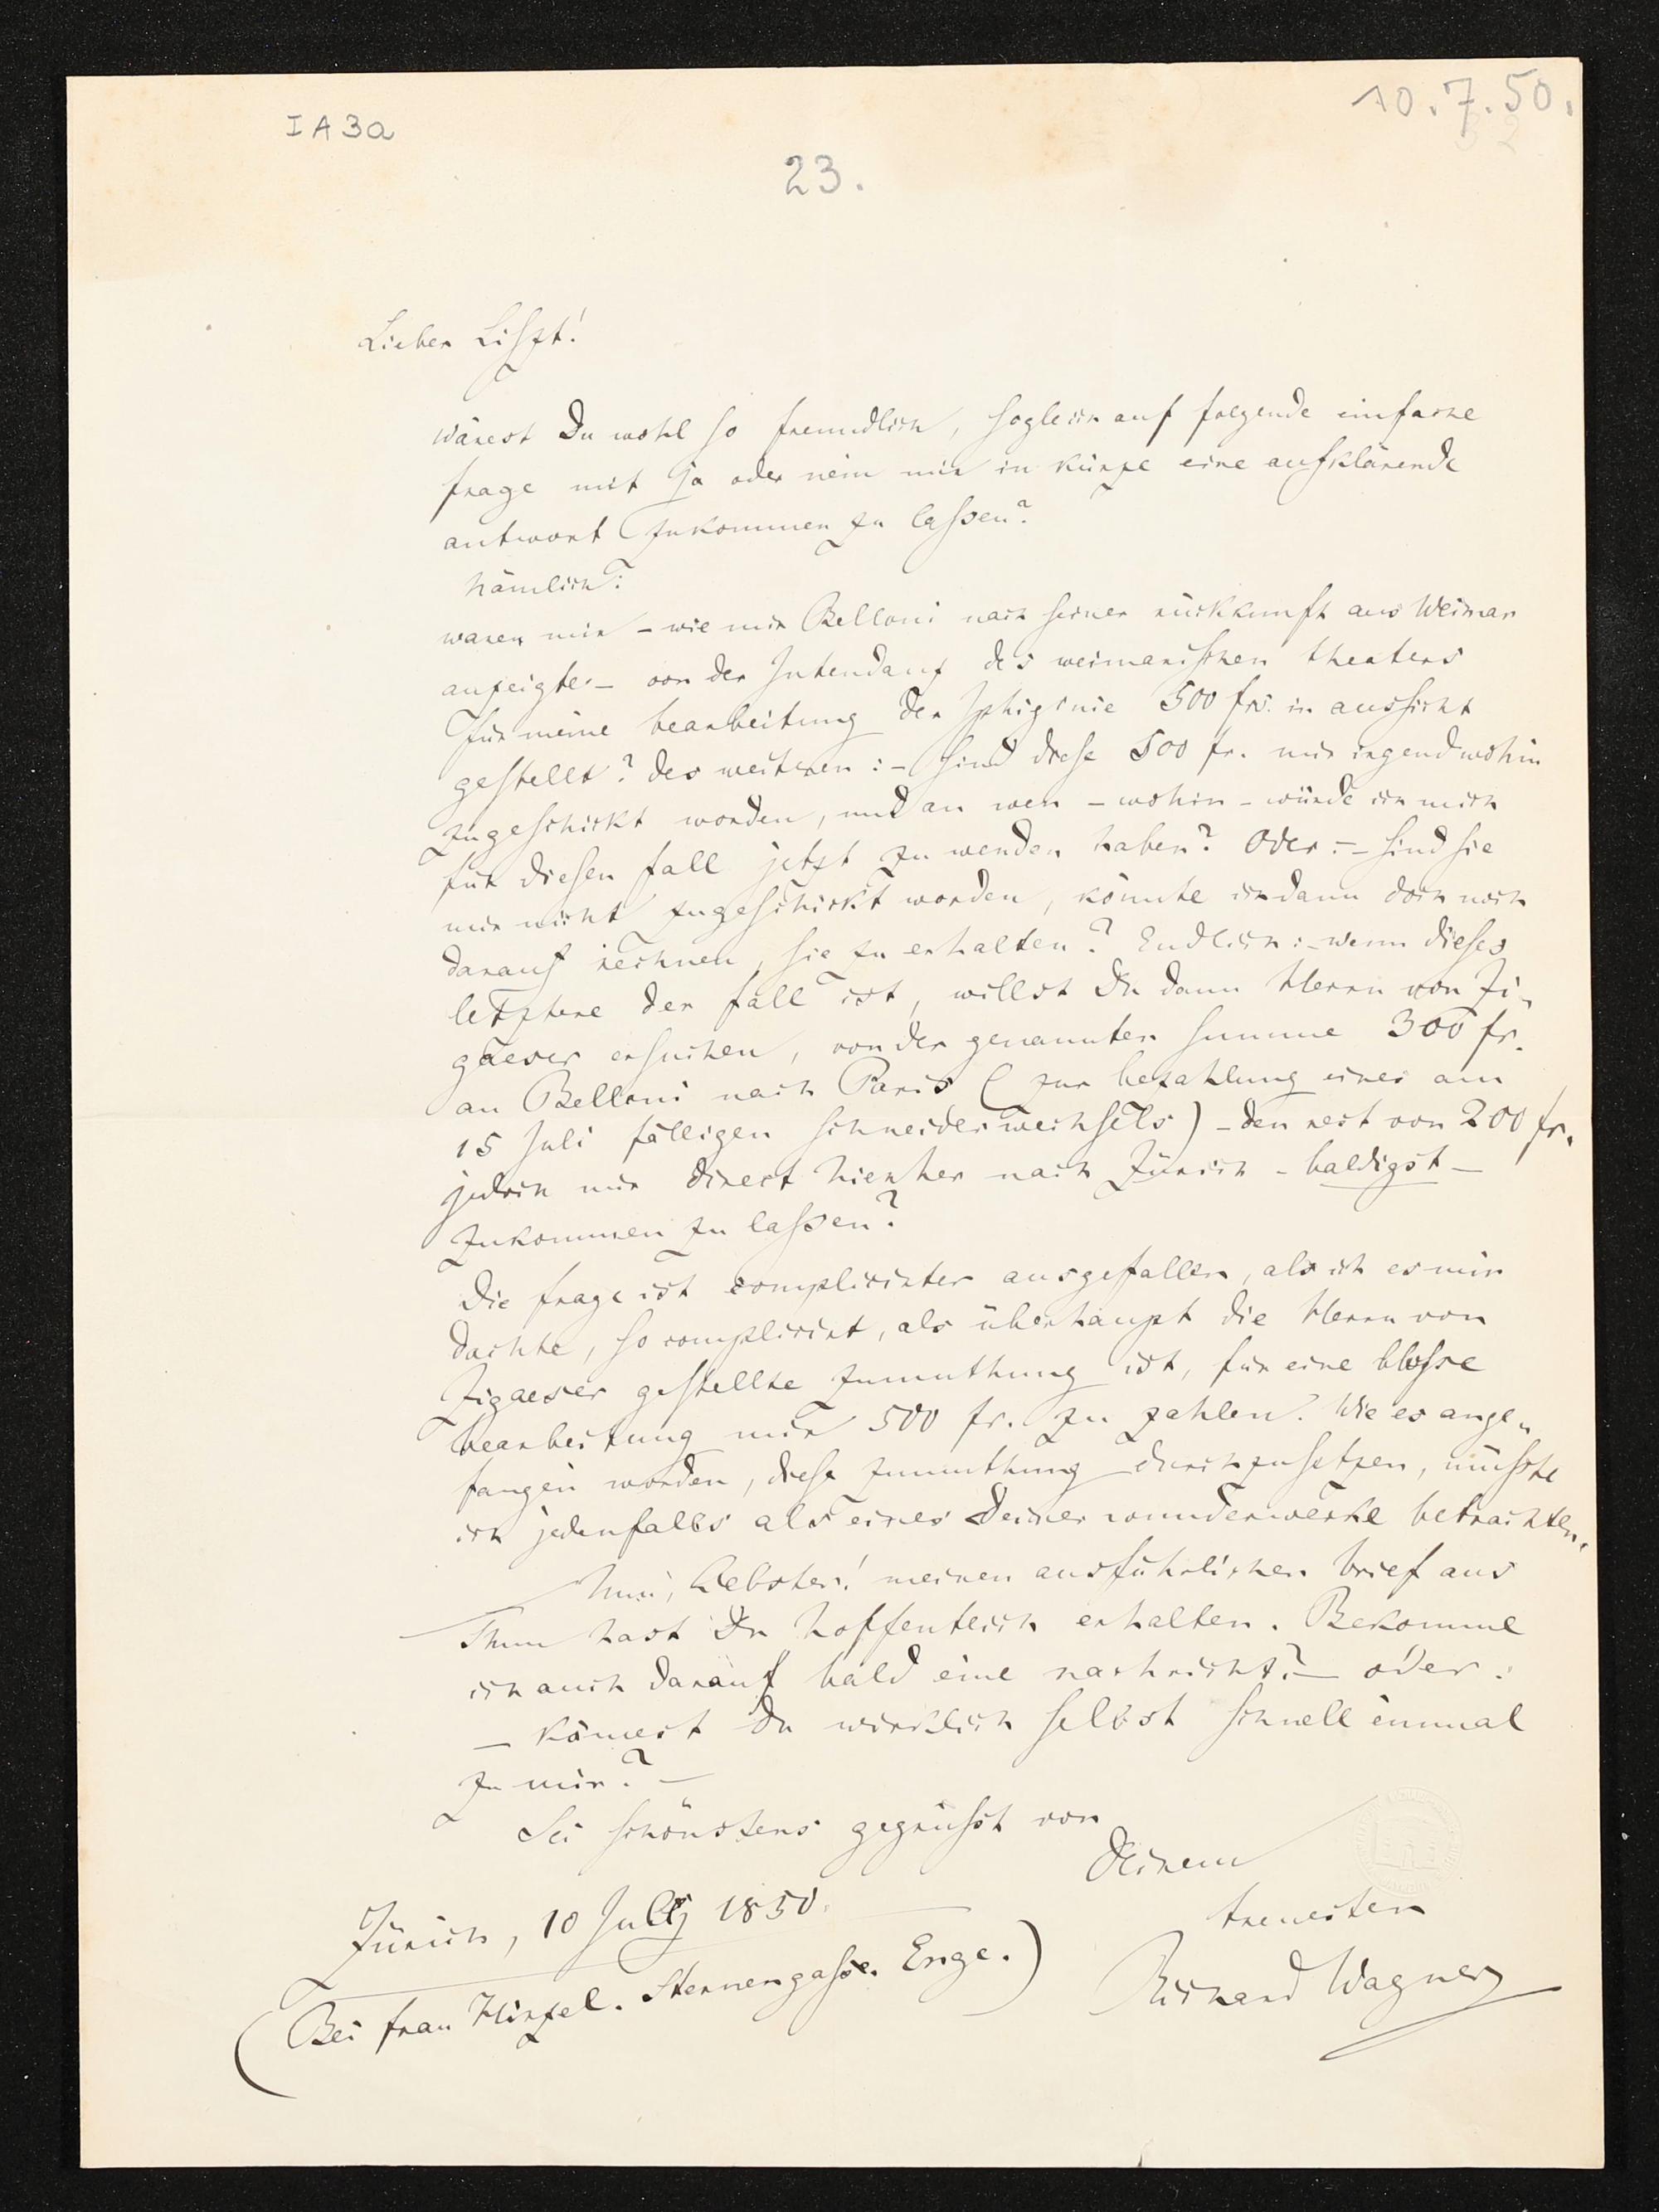 IA3a
10.7.50.
23.
Lieber Liszt!
wärest Du wohl so freundlich, sogleich auf folgende einfache
frage mit Ja oder nein mir in kürze eine aufklärende
antwort zukommen zu lassen?
Nämlich:
waren mir – wie mir Belloni nach seiner rückkunft aus Weimar
anzeigte – von der Intendanz des weimarischen theaters
für meine bearbeitung der Iphigenie 500 frs. in aussicht
gestellt? des weiteren: – sind diese 500 fr. mir irgend wohin
zugeschickt worden, und an wen – wohin – würde ich mich
für diesen fall jetzt zu wenden haben? Oder: – sind sie
mir nicht zugeschickt worden, könnte ich dann doch noch
darauf rechnen, sie zu erhalten? Endlich: – wenn dieses
letztere der fall ist, willst Du dann Herrn von Zi-
gaeser ersuchen, von der genannten summe 300 fr.
an Belloni nach Paris (zur bezahlung eines am
15 Juli fälligen schneiderwechsels) – den rest von 200 fr.
jedoch mir direct hierher nach Zürich – baldigst –
zukommen zu lassen?
Die frage ist complicirter ausgefallen, als ich es mir
dachte, so complicirt, als überhaupt die Herrn von
Zigaeser gestellte zumuthung ist, für eine blosse
bearbeitung mir 500 fr. zu zahlen. Wie es ange-
fangen worden, diese zumuthung durchzusetzen, müsste
ich jedenfalls als eines Deiner wunderwerke betrachten.
Nun, liebster! meinen ausführlichen brief aus
Thun hast Du hoffentlich erhalten. Bekomme
ich auch darauf bald eine nachricht? – oder:
– kämest Du wirklich selbst schnell einmal
zu mir? –
Sei schönstens gegrüsst von
Deinem
treuesten
Richard Wagner
Zürich, 10 July 1850.
(Bei frau Hirzel. Sternengasse. Enge.)